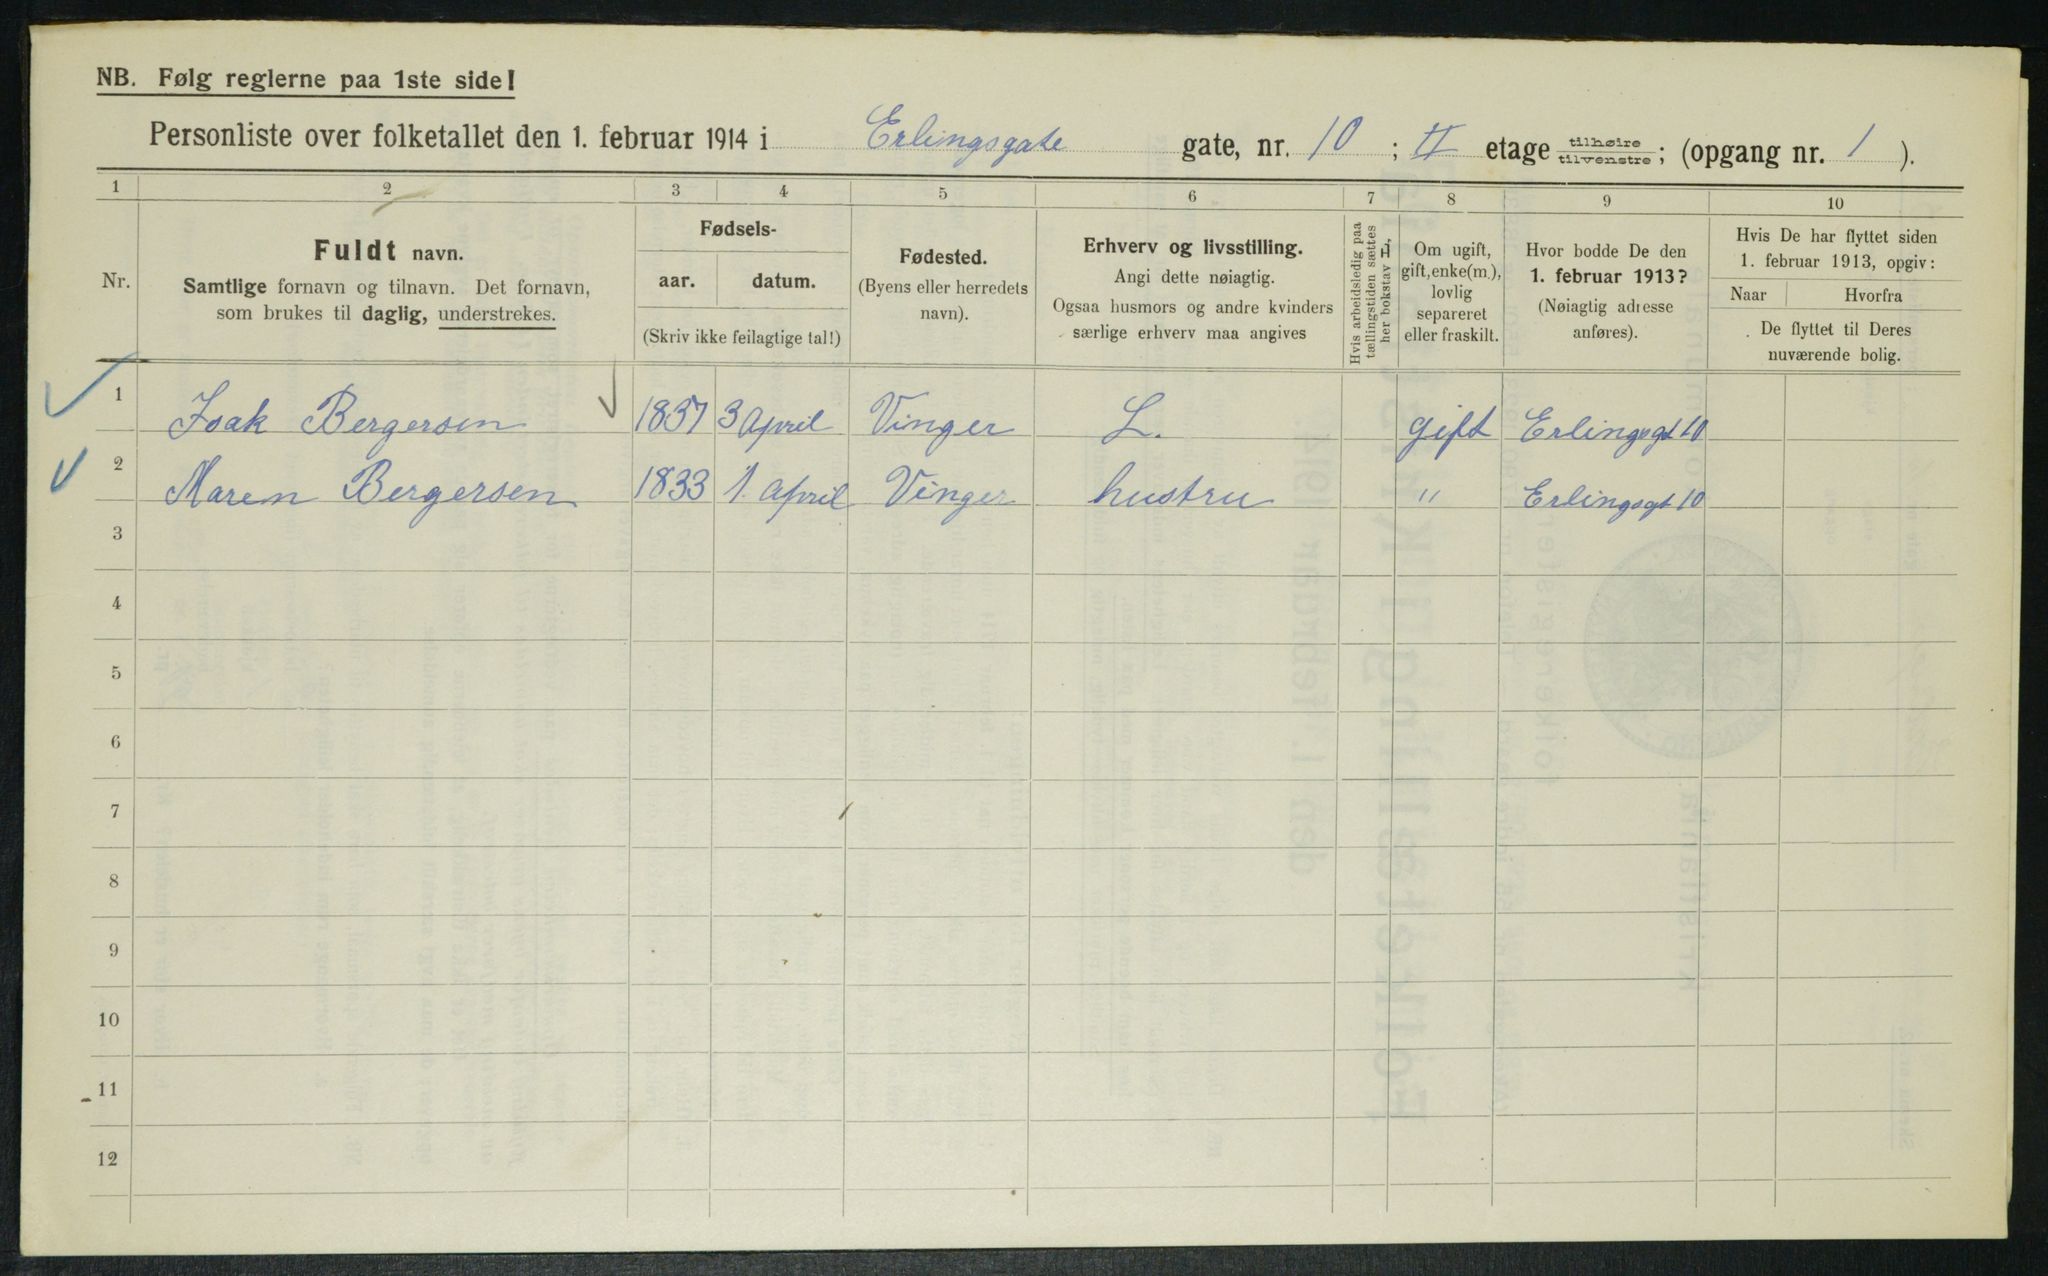 NB. Følg reglerne paa 1ste side!
Personliste over folketallet den 1. februar 1914 i Erlingsgate gate, nr. 10 ; II etage tilhøire tilvenstre ; (opgang nr. 1 ).
1 2 3 4 5 6 7 8 9 10
Nr.
Fuldt navn.
Samtlige fornavn og tilnavn. Det fornavn,
som brukes til daglig, understrekes.
Fødsels-
aar. datum.
(Skriv ikke feilagtige tal!)
Fødested.
(Byens eller herredets
navn).
Erhverv og livsstilling.
Angi dette nøiagtig.
Ogsaa husmors og andre kvinders
særlige erhverv maa angives
Hvis arbeidsledig paa
tællingstiden sættes
her bokstav L.
Om ugift,
gift, enke(m.),
lovlig
separeret
eller fraskilt.
Hvor bodde De den
1. februar 1913?
(Nøiagtig adresse
anføres).
Hvis De har flyttet siden
1. februar 1913, opgiv:
Naar Hvorfra
De flyttet til Deres
nuværende bolig.
1 Isak Bergersen 1837 3 April Vinger L. gift Erlingsgt 10
2 Maren Bergersen 1833 1. april Vinger hustru " Erlingsgt 10
3
4
5
6
7
8
9
10
11
12